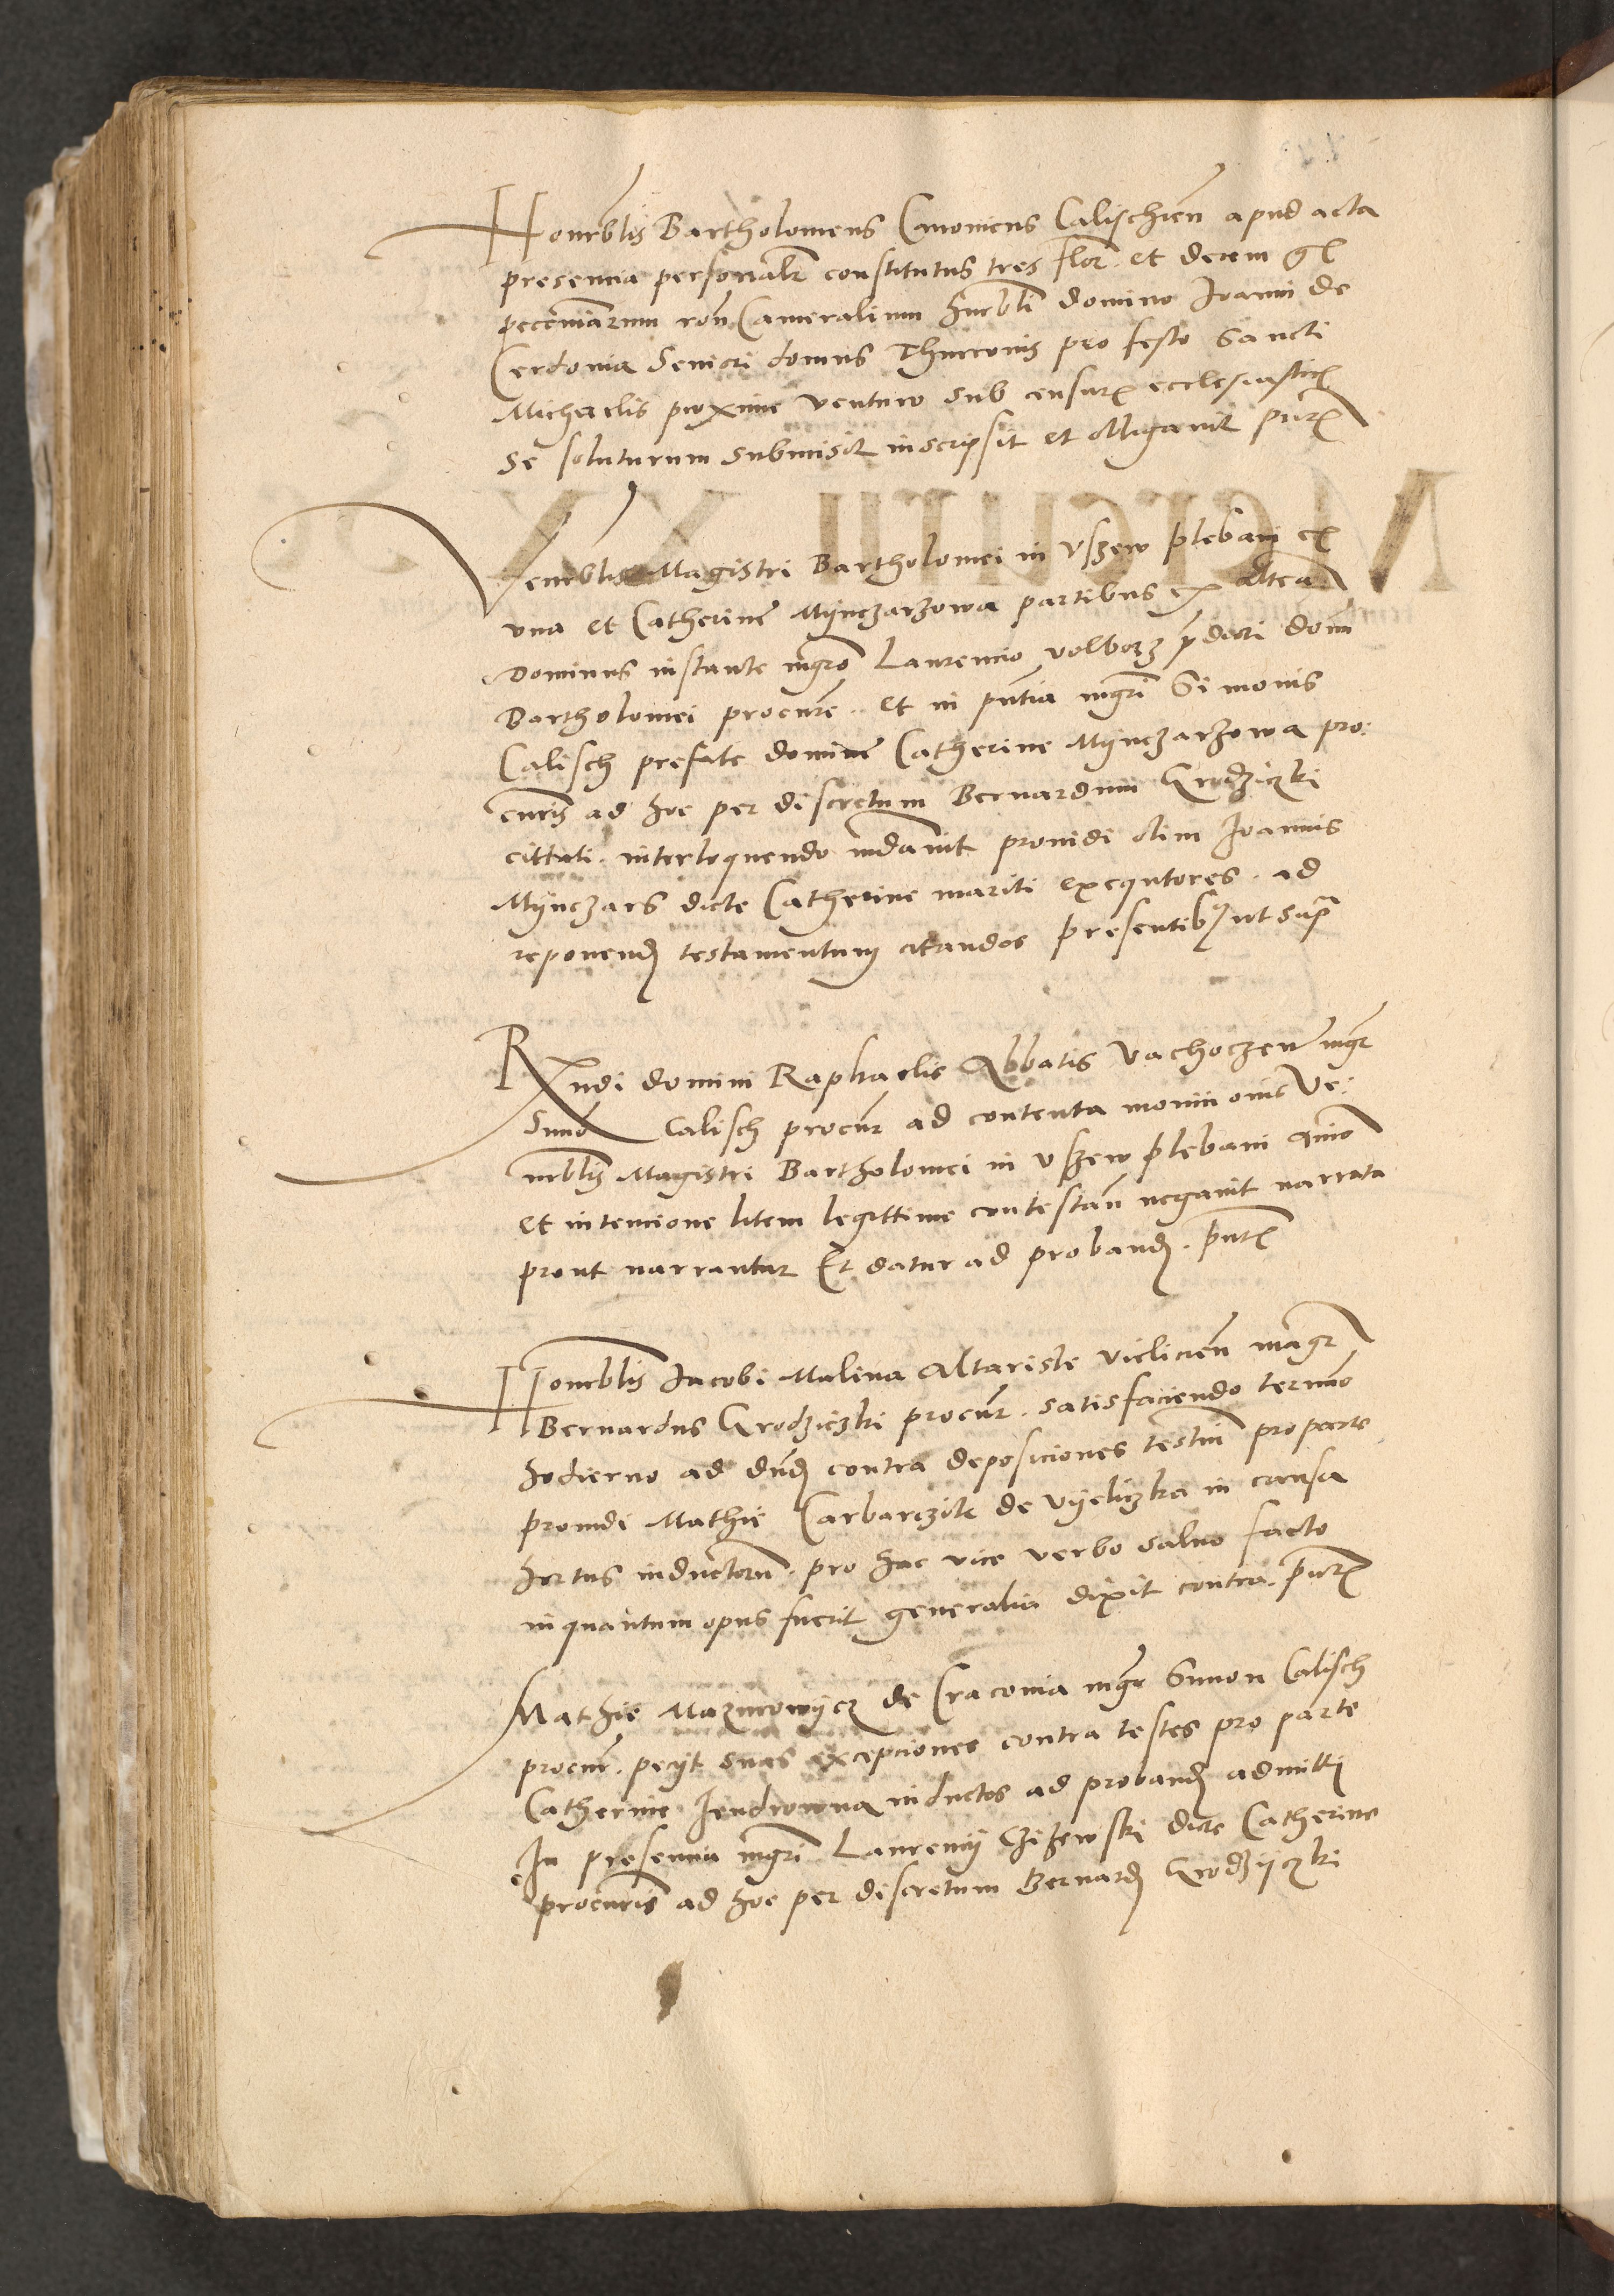 Honrblis Bartholomeus Canonicus Calischien apud acta
presencia personalr constitutus tres flor et decem gl
pecuniarum ron Cameralium hurbli domino Ioanni de
Cerdonia Seniori domus Thurconis pro festo Sancti
Michaelis proxime venturo sub censuris ecclesiasticis
se soluturum submisit inscripsit et obligavit
Venrblis Magistri Bartholomei in Uszew plebani ex
una et Catherine Mynczarzowa partibus ex altera
Dominus instante mgro Laurencio Wolborz dicti domi
Bartholomei procure et in pntia mgri Simonis
Calisch prefate domine Catherine Mynczarzowa pro:
curis ad hoc per discretum Bernardum Grodziczki
cittati interloquendo mdavit providi olim Ioannis
Mynczars dicte Catherine mariti exequtores ad
reponend testamentum citandos presentibus ut supra
Rndi domini Raphaelis Abbatis Vachoczen mgr
Simo Calisch procur ad contenta monicionis Ve:
nrblis Magistri Bartholomei in Uszew plebani animo
et intencione litem legittime contestan negavit narrata
prout narrantur Et datur ad proband. pntes
Honrblis Iacobi Malina Altariste vieliczen magr
Bernardus Grodziczki procur satisfaciendo termino
hodierno ad dnd contra deposiciones testium pro parte
providi Mathie Carbarczik de Vyeliczka in causa
hortus inductorum pro hac vice verbo salvo facto
inquantum opus fuerit generalia dixit contra. pntes
Mathie Mazurowycz de Cracovia mgr Simon Calisch
procur pecyt suas excepciones contra testes pro parte
Catherine Iendrowna inductos ad proband admitti
In presencia mgri Laurencij Czizewski dicte Catherine
procuris ad hoc per discretum Bernard Grodzyczki